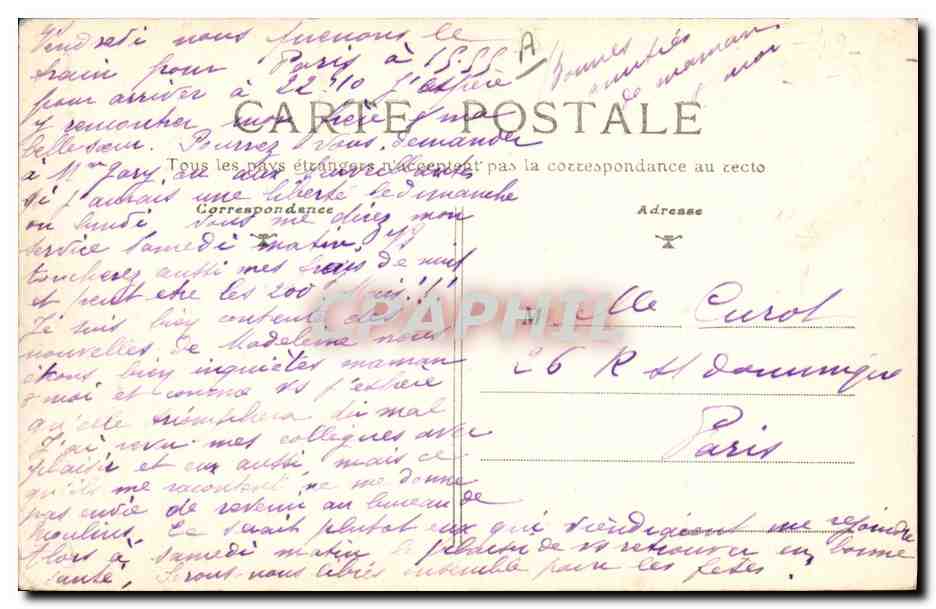 Vendredi nous prenons le
train pour Paris à 15.55
pour arriver à 22.10 J'espère
y remontrer mon frère & ma
belle sœur. Pourrez Vous demander
à
si j'aurais une liberté le dimanche
ou lundi Vous me direz mon
service Samedi matin. Vs
toucherez aussi mes frais de nuit
et peut etre les 200 !!!
Je suis bien contente des
nouvelles de Madeleine nous
étions bien inquiètes maman
& moi et comme vs j'espère
qu'elle triomphera du mal
J'ai revu mes collègues avec
plaisir et eux aussi, mais ce
qu'ils me racontent ne me donne
pas envie de revenir au bureau de
Moulins. Ce serait plutot eux qui viendraient me rejoindre
Alors à Samedi matin le plaisir de vs retrouver en bonne
santé, Serons-nous libres ensemble pour les fêtes?
A
Bonnes
amitiés
de maman
moi
CARTE POSTALE
Tous les pays étrangers n'acceptent pas la correspondance au recto
Correspondance
Adresse
CPAPHIL
Melle Curot
26 R St Dominique
Paris